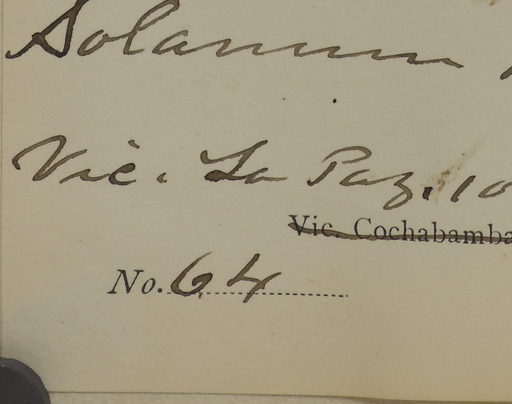 Solanum
Vic. La Paz. 10
Vic. Cochabamba
No. 64